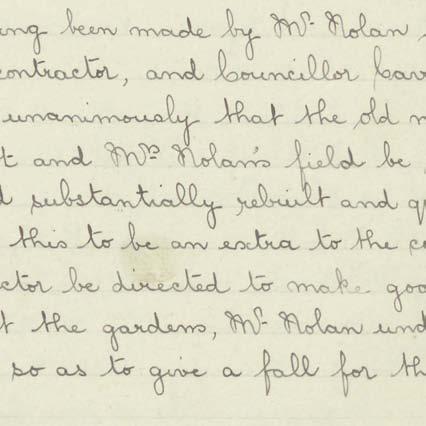 ing been made by Mr. Nolan
contractor, and Councillor Cav
unanimously that the old
t and Mrs. Nolan's field be
d substantially rebuilt and
this to be an extra to the co
ctor be directed to make goo
t the gardens, Mr. Nolan und
so as to give a fall for th